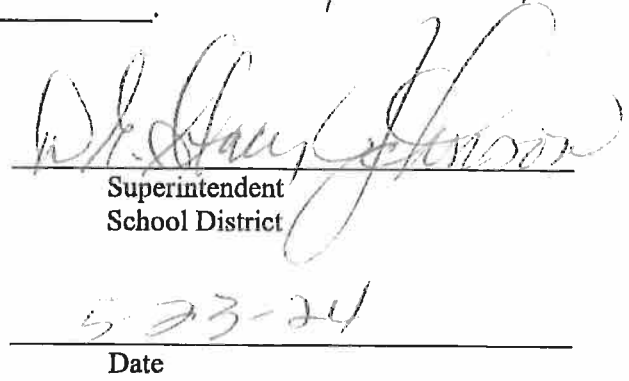 Dr. Stacy Johnson
Superintendent
School District
5-23-24
Date